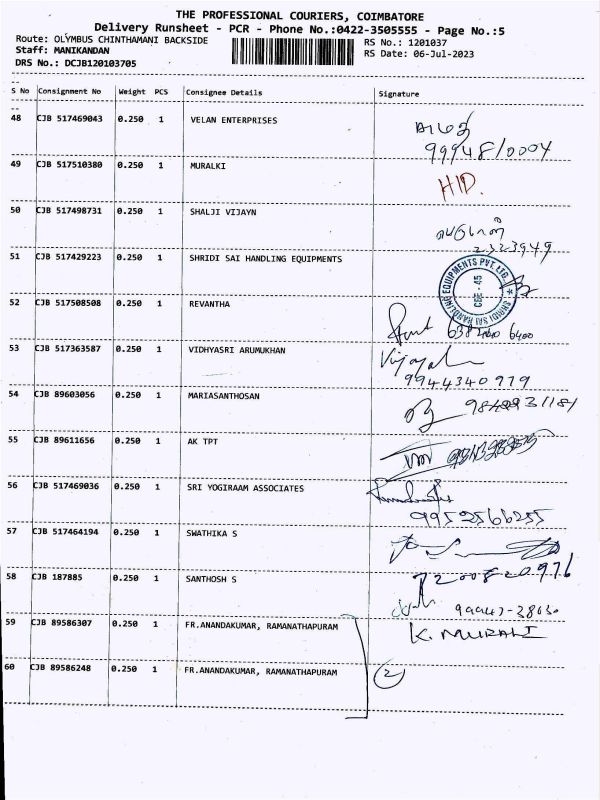 THE PROFESSIONAL COURIERS, COIMBATORE
Delivery Runsheet - PCR - Phone No.:0422-3505555 - Page No.:5
Route: OLYMBUS CHINTHAMANI BACKSIDE
RS No.: 1201037
Staff: MANIKANDAN
RS Date: 06-Jul-2023
DRS No.: DCJB120103705
S No Consignment No Weight PCS Consignee Details Signature
48 CJB 517469043 0.250 1 VELAN ENTERPRISES
49 CJB 517510380 0.250 1 MURALKI
HID.
50 CJB 517498731 0.250 1 SHALJI VIJAYN
2323949
51 CJB 517429223 0.250 1 SHRIDI SAI HANDLING EQUIPMENTS
SHRIDI SAI HANDLING EQUIPMENTS PVT. LTD.
CBE - 45
52 CJB 517508508 0.250 1 REVANTHA
53 CJB 517363587 0.250 1 VIDHYASRI ARUMUKHAN
9944340979
54 CJB 89603056 0.250 1 MARIASANTHOSAN
55 CJB 89611656 0.250 1 AK TPT
56 CJB 517469036 0.250 1 SRI YOGIRAAM ASSOCIATES
9952566255
57 CJB 517464194 0.250 1 SWATHIKA S
58 CJB 187885 0.250 1 SANTHOSH S
7200820976
59 CJB 89586307 0.250 1 FR.ANANDAKUMAR, RAMANATHAPURAM
K. MURALI
60 CJB 89586248 0.250 1 FR.ANANDAKUMAR, RAMANATHAPURAM
2